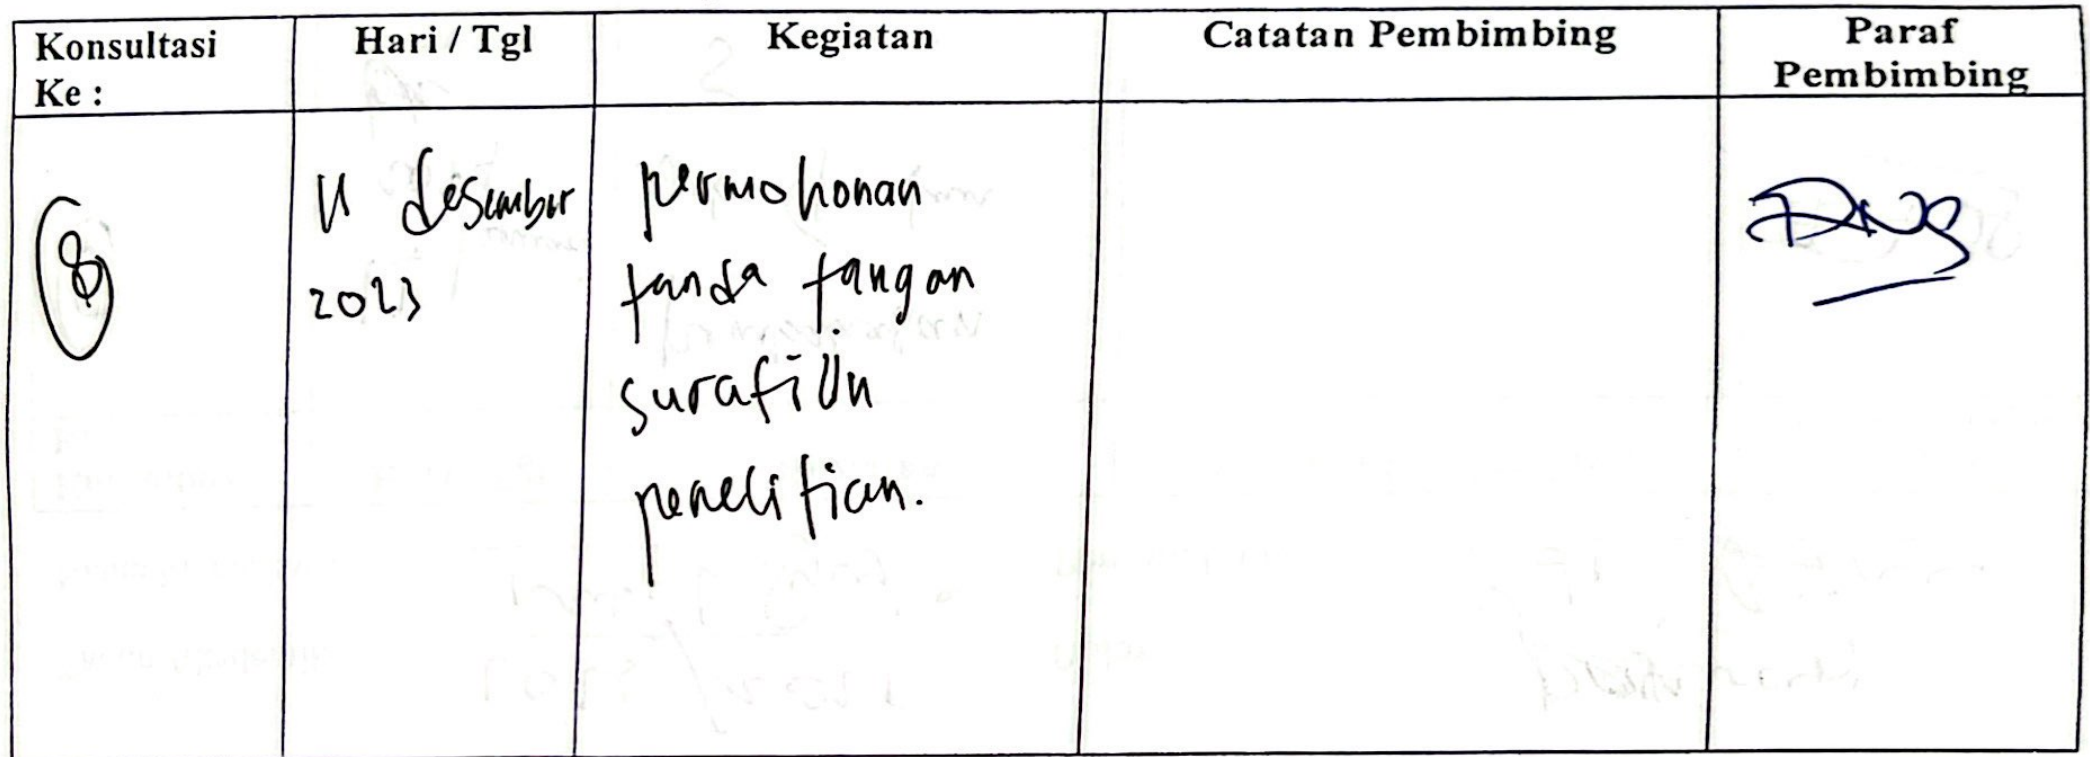 Konsultasi
Ke :
Hari / Tgl
Kegiatan
Catatan Pembimbing
Paraf
Pembimbing
8
11 desember
2023
permohonan
tanda tangan
surat izin
penelitian.